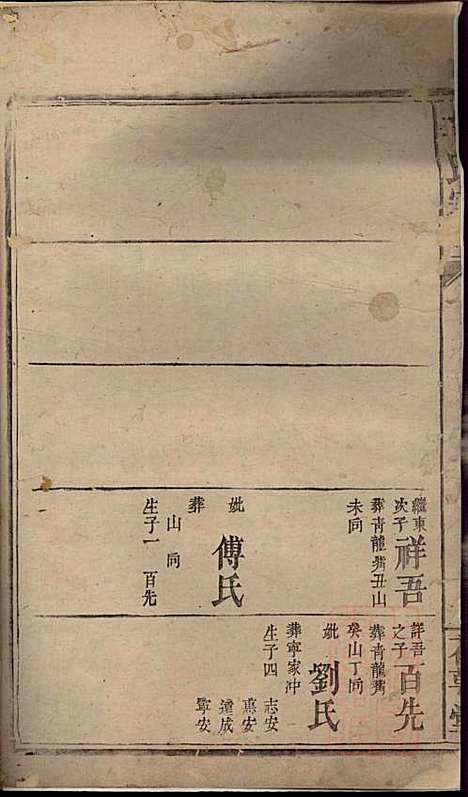 繼東
次子
祥吾
葬青龍嘴丑山
未向
妣
傅氏
葬
山 向
生子一 百先
祥吾
之子
百先
葬青龍嘴
癸山丁向
妣
劉氏
葬寧家冲
生子四
志安
惠安
達成
寧安